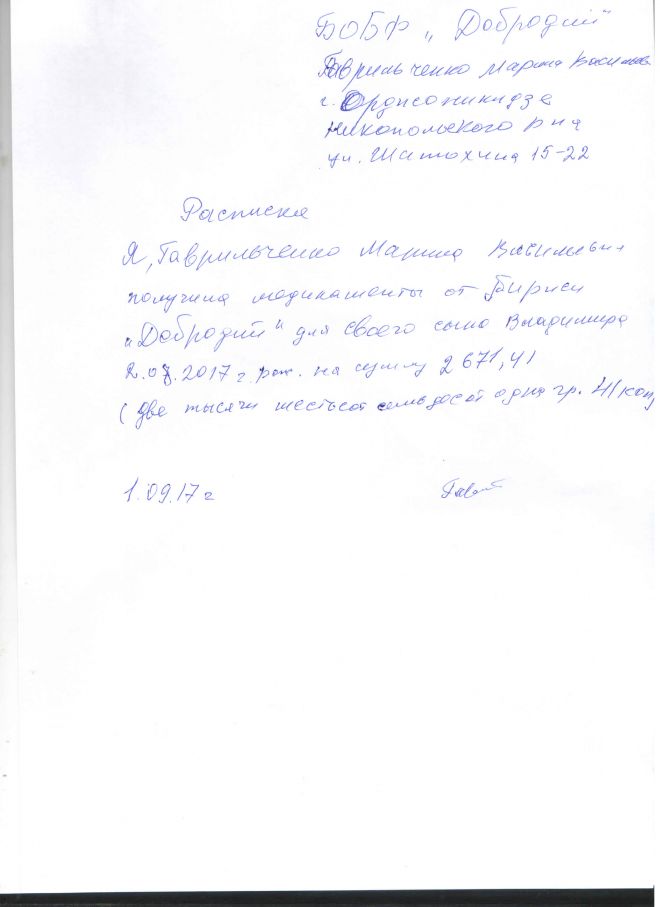 БОБФ „Добродий"
Гаврильченко Марина Василь
г. Орджоникидзе
Никопольского р на
ул. Шатохина 15-22
Расписка
Я, Гаврильченко Марина Васильевна
получила медикаменты от
„Добродий" для своего сына Владимира
2.07.2017 г. рож. на сумму 2 671,41
(две тысячи шестьсот семьдесят одна гр. 41 коп)
1.09.17 г